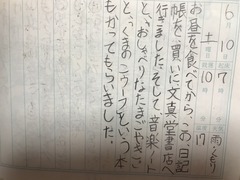 6月10日
土曜日
起床7時
就床10時
雨くもり
17
お昼を食べてから、この日記
帳を、買いに文真堂書店へ
行きました。そして、音楽ノート
と、おしゃべりなたまごやき
と、くまの子ウーフという本
もかってもらいました。